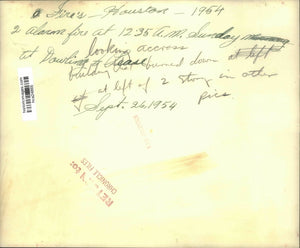 Fires - Houston - 1954
2 alarm fire at 12:35 A.M. Sunday
at Dowling &
looking across
building that burned down at left
at left of 2 story in other
pics.
Sept. 26, 1954
CHRONICLE FILES